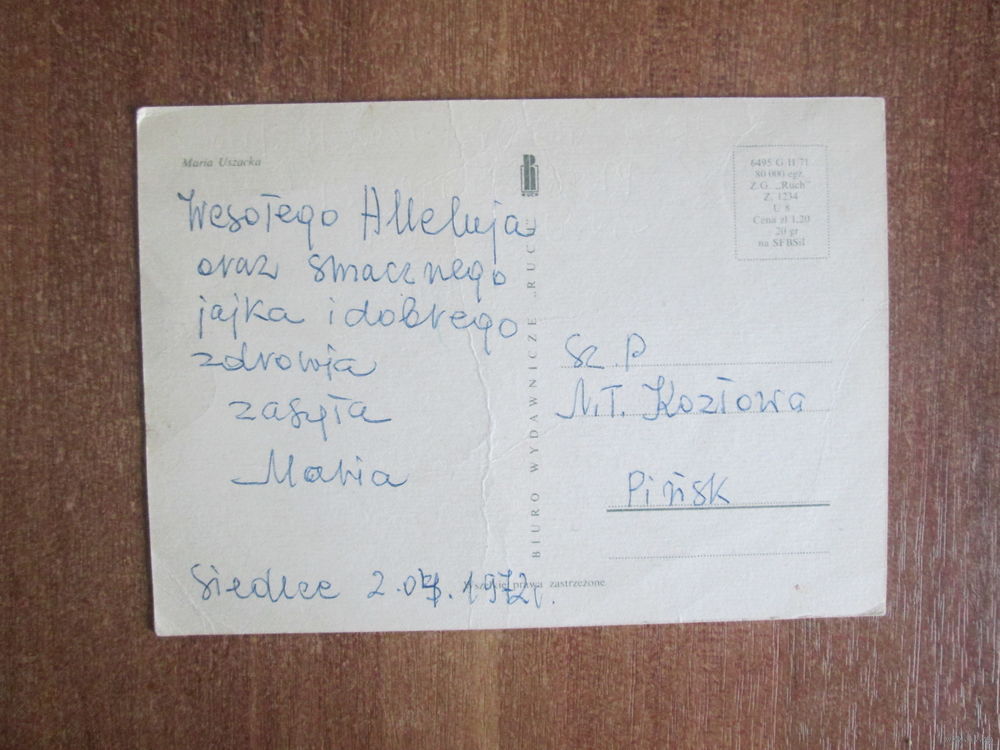 Maria Uszacka
Wesołego Alleluja
oraz smacznego
jajka i dobrego
zdrowia
zasyła
Maria
Siedlce 2.04.1972r.
RUCH
BIURO WYDAWNICZE „RUCH”
Wszelkie prawa zastrzeżone
6495 G H 71
80 000 egz.
Z.G. „Ruch”
Z. 1234
U 8
Cena zł 1,20
20 gr
na SFBSiI
Sz. P
N.T. Kozłowa
Pińsk